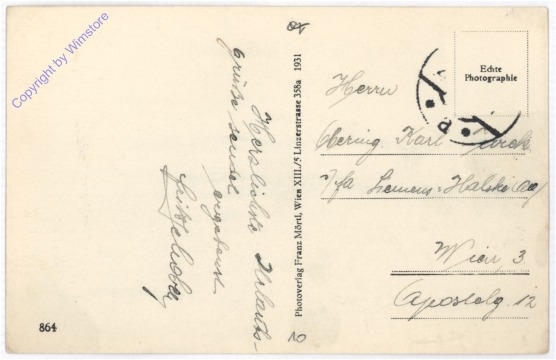 Copyright by Wimstore
Herzlichste Urlaubs-
grüße sendet
ergebenst
Photoverlag Franz Mörtl, Wien XIII./5 Linzerstrasse 358a 1931
Echte
Photographie
Herrn
Obering. Karl
i/fa Siemens-Halske AG
Wien 3
Apostelg. 12
864
10